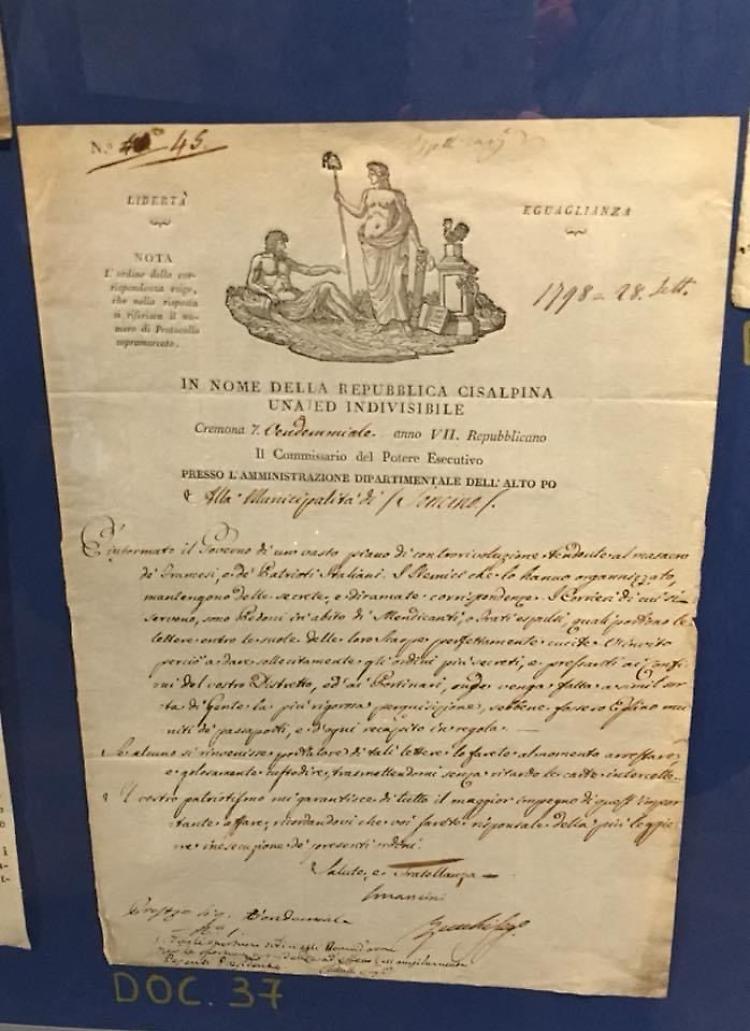 N.º 45
LIBERTÀ
EGUAGLIANZA
NOTA
L'ordine della cor-
rispondenza esige,
che nella risposta
si riferisca il nu-
mero di Protocollo
sopramarcato.
1798 = 28. Sett.
IN NOME DELLA REPUBBLICA CISALPINA
UNA ED INDIVISIBILE
Cremona 7. Vendemmiale anno VII. Repubblicano
Il Commissario del Potere Esecutivo
PRESSO L'AMMINISTRAZIONE DIPARTIMENTALE DELL'ALTO PO
Alla Municipalità di Soncino
È informato il Governo di un vasto piano di controrivoluzione tendente al massacro
de' Francesi, e de' Patrioti Italiani. I Nemici che lo hanno organnizzato,
mantengono delle secrete, e diramate corrispondenze. I Corrieri di cui si
servono, sono Pedoni in abito di Mendicanti, o Frati espulsi, quali portano le
lettere entro le suole delle loro scarpe perfettamente cucite. V'invito
perciò a dare sollecitamente gli ordini più secreti, e pressanti ai Confi-
ni del vostro Distretto, ed ai Portinari, onde venga fatta a simil sor-
ta di Gente la più rigorosa perquisizione, sebbene fossero Eglino mu-
niti de' passaporti, e d'ogni recapito in regola.
Se alcuno si rinvenisse portatore di tali lettere lo farete al momento arrestare,
e gelosamente custodire, trasmettendomi senza ritardo le carte intercette.
Il vostro patriotismo mi garantisce di tutto il maggior impegno di quest'impor-
tante affare, ricordandovi che voi sarete risponsale della più leggie-
re inesecuzione de' presenti ordini.
Salute, e Fratellanza
Vendemiale
DOC. 37